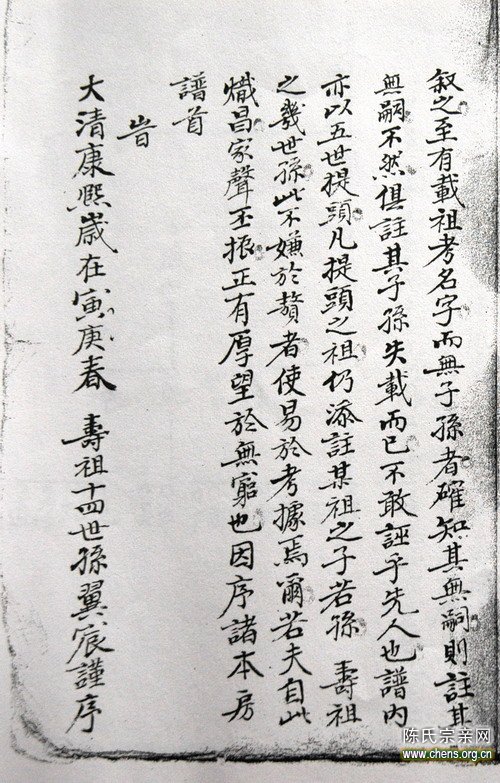 叙之至有載祖考名字而無子孫者確知其無嗣則註其
無嗣不然俱註其子孫失載而已不敢誣乎先人也譜内
亦以五世提頭凡提頭之祖仍添註某祖之子若孫 壽祖
之幾世孫此不嫌於贅者使易於考據焉爾若夫自此
熾昌家聲丕振正有厚望於無窮也因序諸本房
譜首
旹
大清康熈歲在寅庚春 壽祖十四世孫翼宸謹序
陈氏宗亲网
www.chens.org.cn